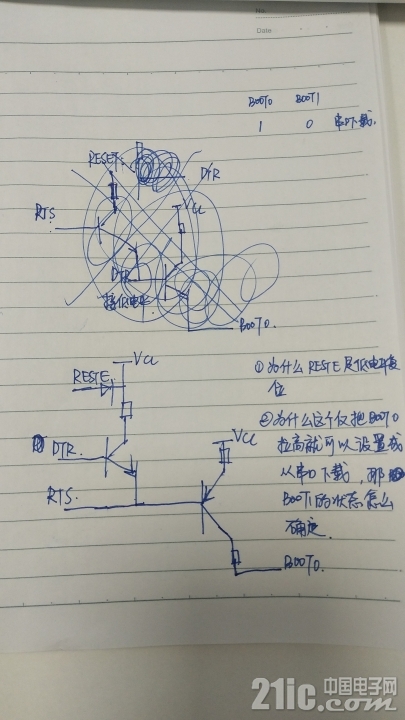 No.
Date
BOOT0 BOOT1
1 0 串口下载.
RESET.
DTR
RTS.
Vcc
DTR
接低电平.
BOOT0.
Vcc
RESTE
DTR.
RTS.
Vcc
BOOT0.
①为什么RESTE是低电平复
位
②为什么这个仅把BOOT0
拉高就可以设置成
从串口下载,那
BOOT1的状态怎么
确定.
21ic中国电子网
.com